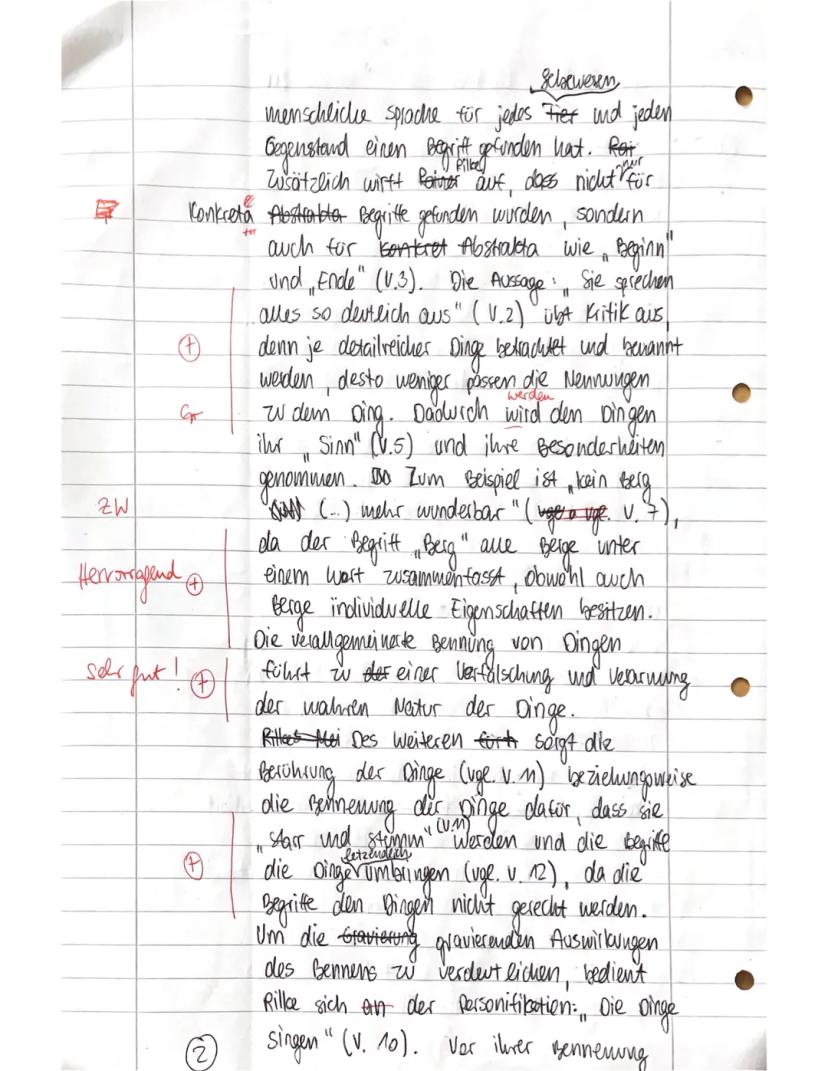 Lebewesen
menschliche Sprache für jedes Tier und jeden
Gegenstand einen Begriff gefunden hat.
Rilke nur
Zusätzlich wirft auf, dass nicht für
Konkreta Abstrakta Begriffe gefunden wurden, sondern
auch für konkret Abstrakta wie „Beginn"
und „Ende" (V.3). Die Aussage: „Sie sprechen
alles so deutlich aus" (V.2) übt Kritik aus,
+ denn je detailreicher Dinge betrachtet und benannt
werden, desto weniger passen die Nennungen
werden
Gr zu dem Ding. Dadurch wird den Dingen
ihr „Sinn" (V.5) und ihre Besonderheiten
genommen. Zum Beispiel ist „kein Berg
ZW (...) mehr wunderbar" (vgl. V. 7),
da der Begriff „Berg" alle Berge unter
Hervorragend + einem Wort zusammenfasst, obwohl auch
Berge individuelle Eigenschaften besitzen.
Die verallgemeinerte Bennung von Dingen
sehr gut! + führt zu der einer Verfälschung und Verarmung
der wahren Natur der Dinge.
Des Weiteren sorgt die
Berührung der Dinge (vgl. V. 11) beziehungsweise
die Bennenung der Dinge dafür, dass sie
„starr und stumm" (V.11) werden und die Begriffe
letzendlich
+ die Dinge umbringen (vgl. V. 12), da die
Begriffe den Dingen nicht gerecht werden.
Um die Gravierung gravierenden Auswirkungen
des Bennens zu verdeutlichen, bedient
Rilke sich an der Personifikation: „Die Dinge
singen" (V. 10). Vor ihrer Bennenung
2